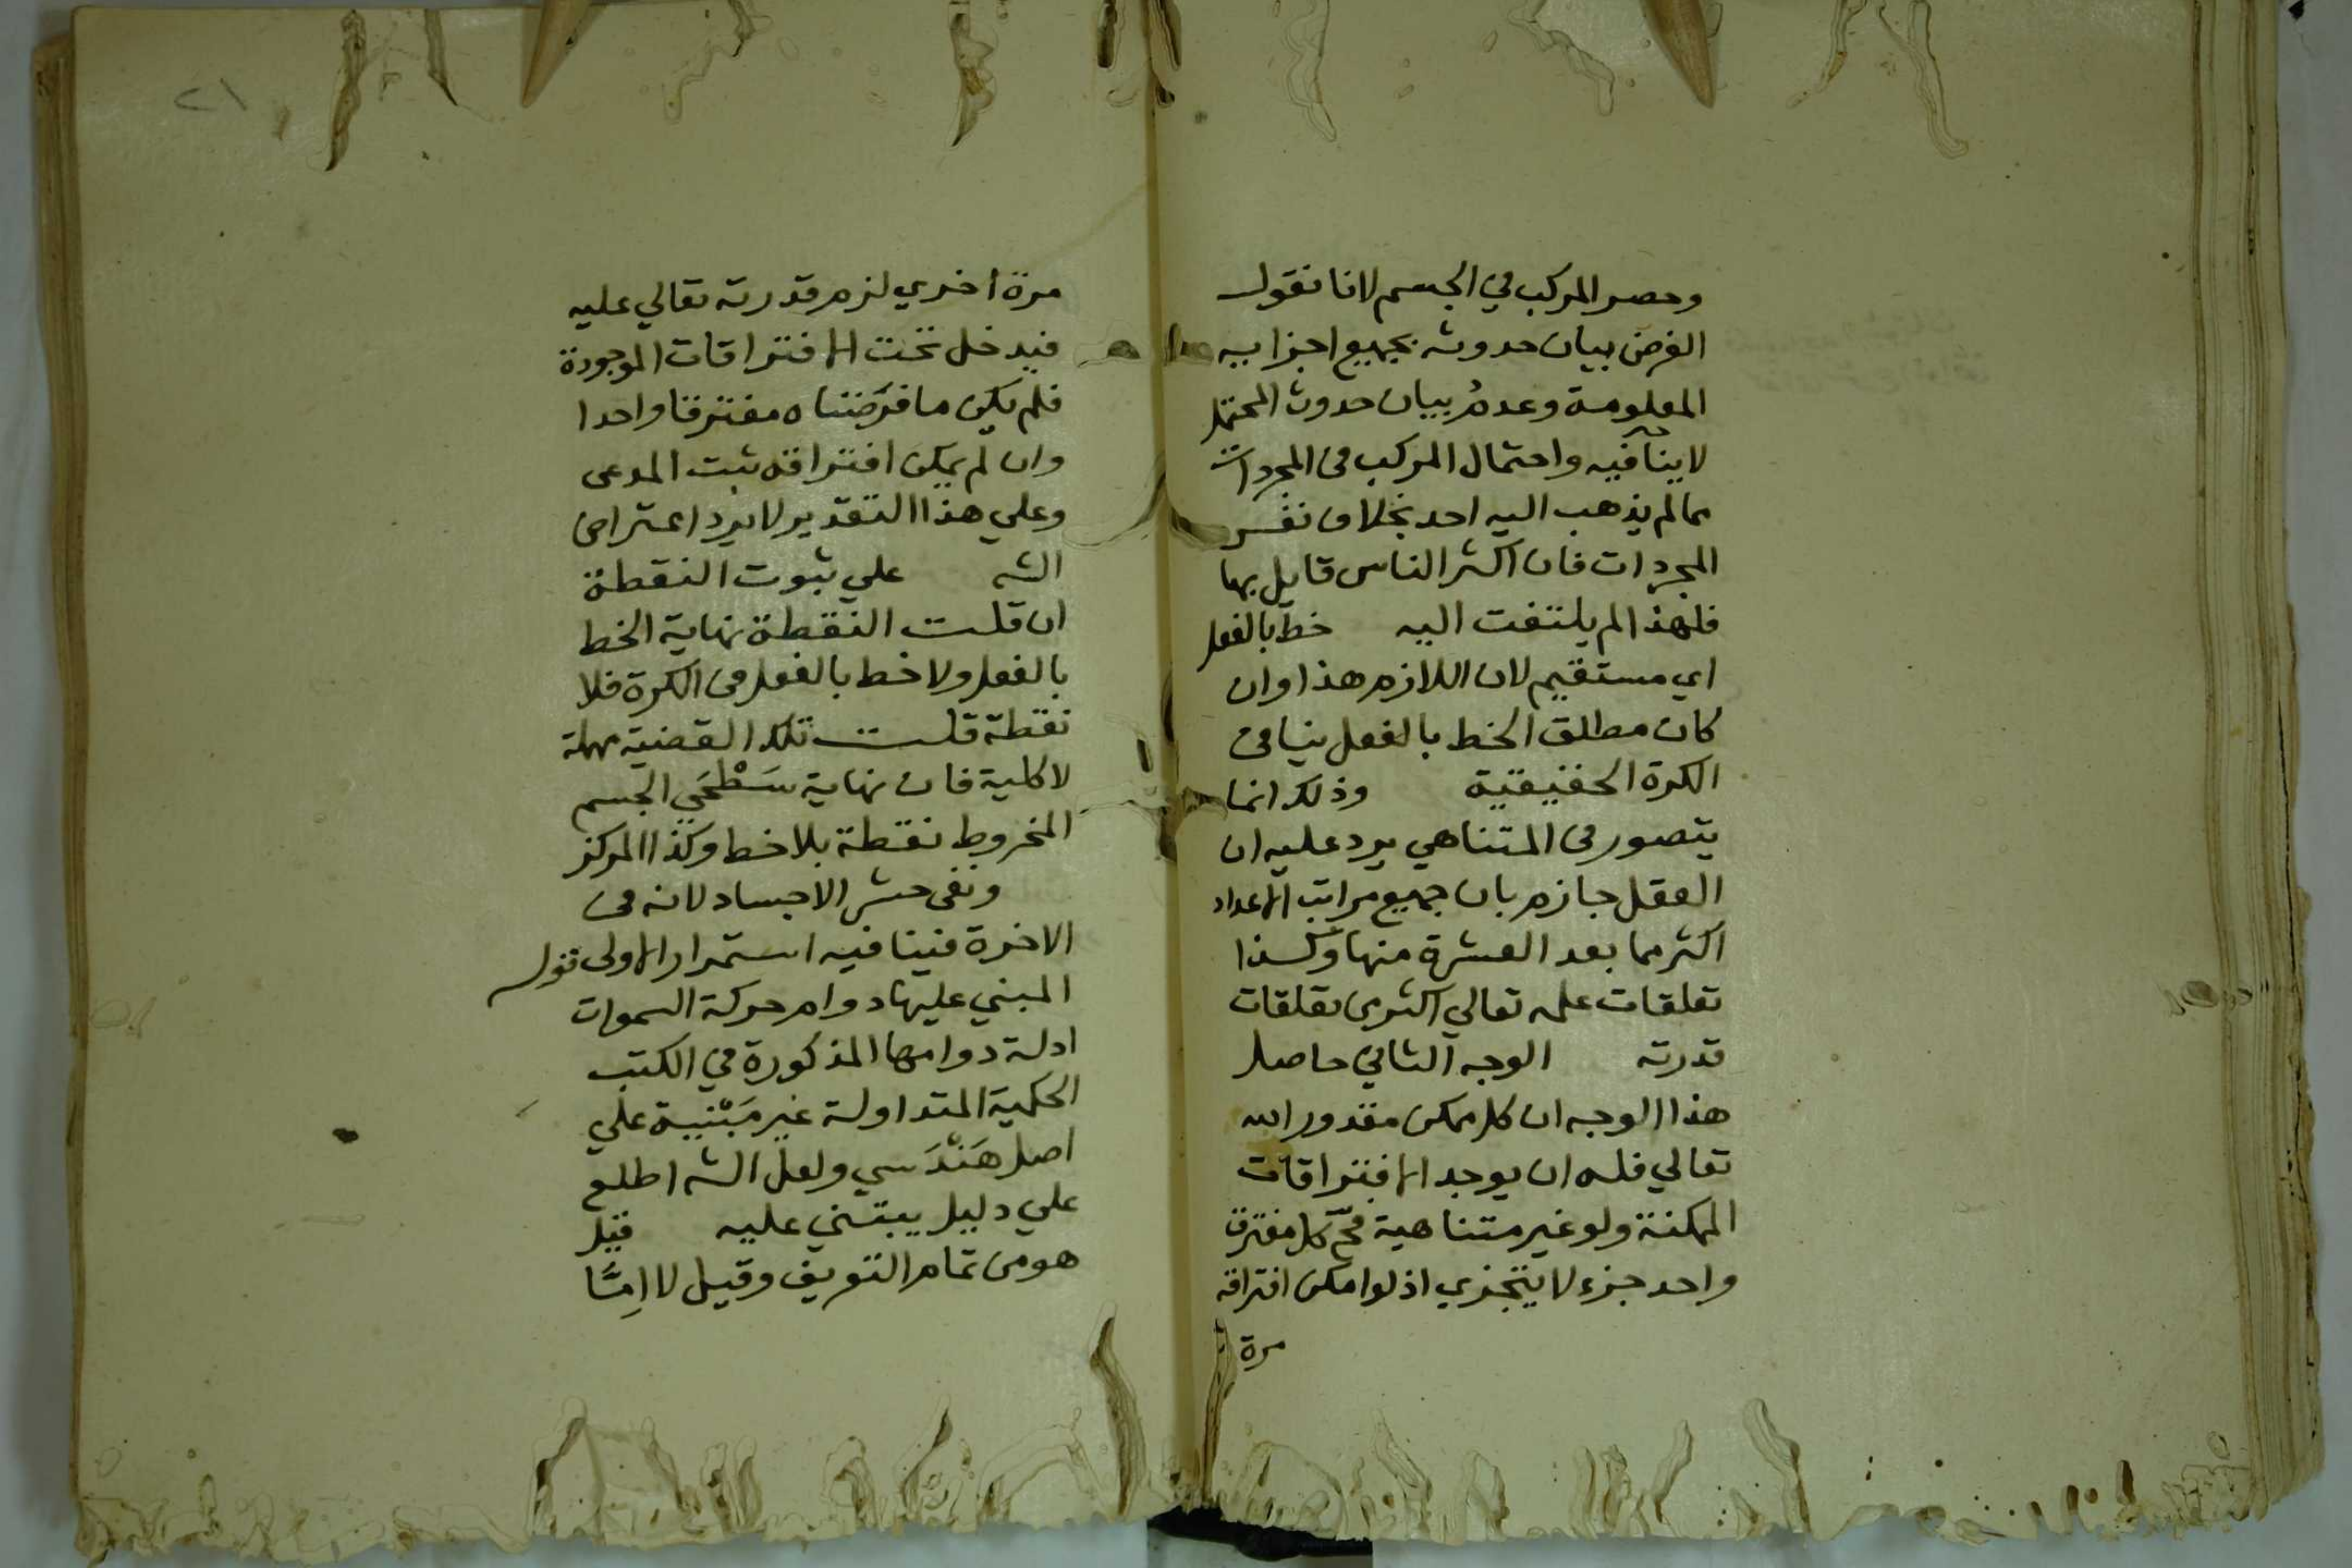 وحصر المركب في الجسم لانا نقول
الغرض بيان حدوثه بجميع اجزايه
المعلومة وعدمُ بيان حدوث المحتمل
لاينافيه واحتمال المركب من المجردات
مما لم يذهب اليه احد بخلاف نفس
المجردات فان اكثر الناس قايل بها
فلهذا لم يلتفت اليه خط بالفعل
اي مستقيم لان اللازم هذا وان
كان مطلق الخط بالفعل ينافي
الكرة الحقيقية وذلك انما
يتصور في المتناهي يرد عليه ان
العقل جازم بان جميع مراتب الاعداد
اكثر مما بعد العشرة منها وكذا
تعلقات علمه تعالي اكثر من تعلقات
قدرته الوجه الثاني حاصل
هذا الوجه ان كل ممكن مقدور الله
تعالي فله ان يوجد الافتراقات
الممكنة ولو غير متناهية فح كل مفترق
واحد جزء لا يتجزي اذ لو امكن افتراقه
مرة
٢١
مرة اخري لزم قدرته تعالي عليه
فيدخل تحت الافتراقات الموجودة
فلم يكن ما فرَضناه مفترقا واحدا
وان لم يمكن افتراقه ثبت المدعى
وعلي هذا التقدير لا يرد اعتراض
الشه علي ثبوت النقطة
ان قلت النقطة نهاية الخط
بالفعل ولا خط بالفعل في الكرة فلا
نقطة قلت تلك القضية مهملة
لا كلية فان نهاية سَطْحَي الجسم
المخروط نقطة بلا خط وكذا المركز
ونفى حشر الاجساد لانه في
الاخرة فينافيه استمرار الاولى قوله
المبني عليها دوام حركة السموات
ادلة دوامها المذكورة في الكتب
الحكمية المتداولة غير مَبْنية علي
اصل هَنْدَسي ولعل الشه اطلع
علي دليل يبتني عليه قيل
هو من تمام التعريف وقيل لا اِمّا